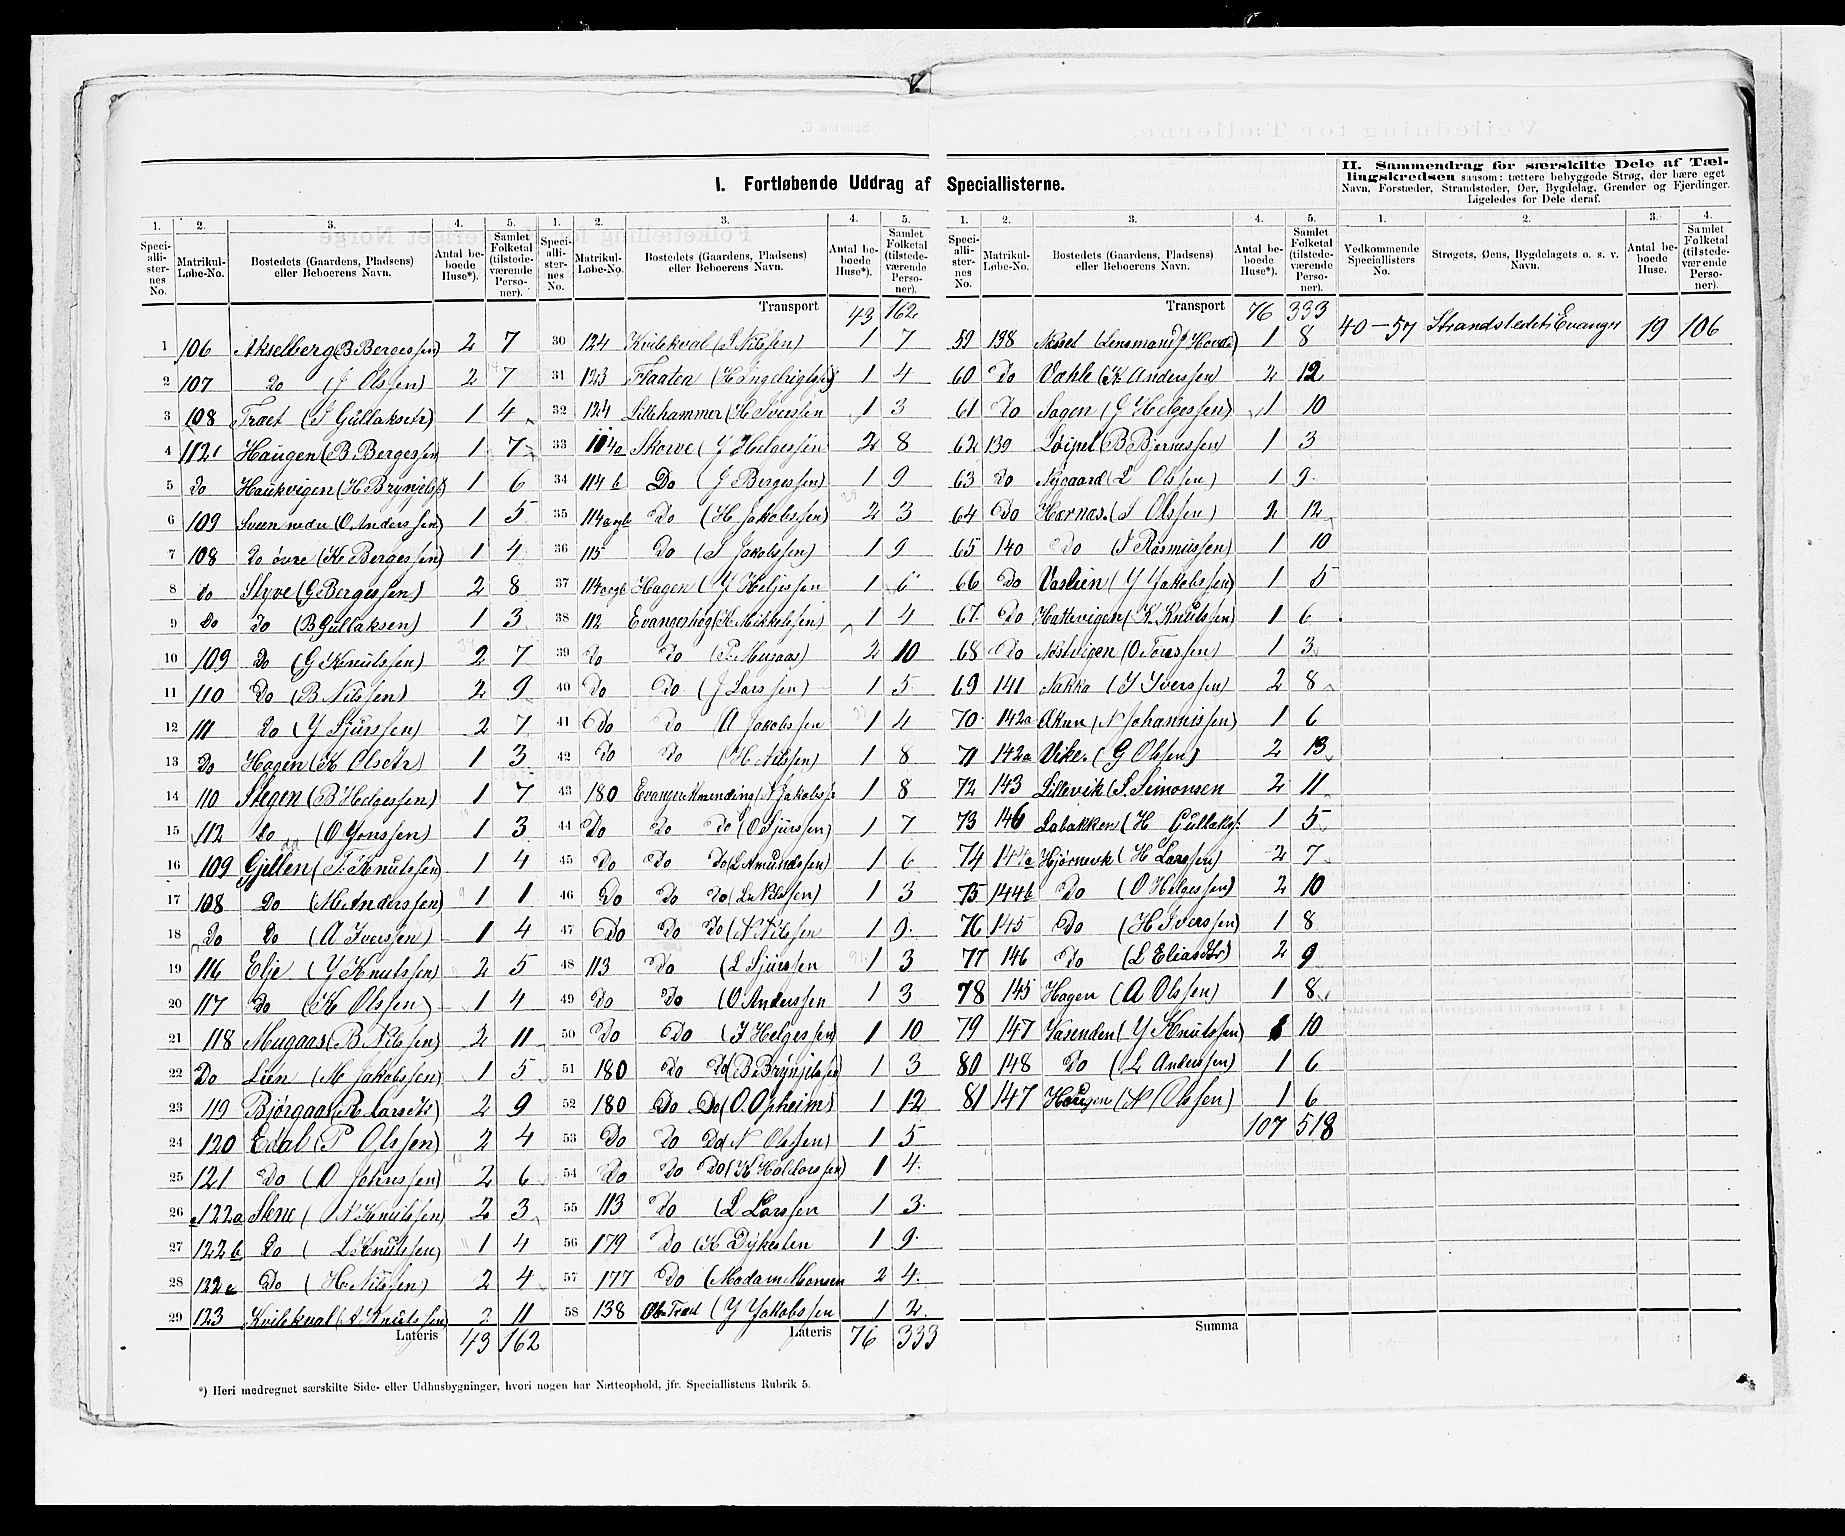 I. Fortløbende Uddrag af Speciallisterne.
II. Sammendrag for særskilte Dele af Tæl-
lingskredsen saasom: tættere bebyggede Strøg, der bære eget
Navn, Forstæder, Strandsteder, Øer, Bygdelag, Grender og Fjerdinger.
Ligeledes for Dele deraf.
1. 2. 3. 4. 5. 1. 2. 3. 4. 5. 1. 2. 3. 4. 5. 1. 2. 3. 4.
Speciallisternes No. Matrikul-Løbe-No. Bostedets (Gaardens, Pladsens) eller Beboerens Navn. Antal beboede Huse*). Samlet Folketal (tilstedeværende Personer).
Speciallisternes No. Matrikul-Løbe-No. Bostedets (Gaardens, Pladsens) eller Beboerens Navn. Antal beboede Huse*). Samlet Folketal (tilstedeværende Personer).
Speciallisternes No. Matrikul-Løbe-No. Bostedets (Gaardens, Pladsens) eller Beboerens Navn. Antal beboede Huse*). Samlet Folketal (tilstedeværende Personer).
Vedkommende Speciallisters No. Strøgets, Øens, Bygdelagets o. s. v. Navn. Antal beboede Huse. Samlet Folketal (tilstedeværende Personer).
1 106 Akselberg (B Bergessen) 2 7
2 107 Do (J Olssen) 2 7
3 108 Træt (I Gullaksdtr) 1 4
4 112 Haugen (B Bergessen 1 7
5 Do Haukvigen (H Brynjels) 1 6
6 109 Sveen nedre (O. Anderssen) 1 5
7 108 Do øvre (K Bergessen) 1 4
8 do Styve (G Bergessen) 2 8
9 Do Do (B Gullaksen) 1 3
10 109 Do (G Knutssen) 2 7
11 110 Do (B Nilssen) 2 9
12 111 Do (Y Sjurssen) 2 7
13 Do Hagen (K Olsdtr) 1 3
14 110 Stegen (B Helgessen) 1 7
15 112 Do (O Yonssen) 1 3
16 109 Gjellen (T. Knutssen) 1 4
17 108 Do (M Anderssen) 1 1
18 Do Do (A Iverssen) 1 4
19 116 Elje (Y Knutssen) 2 5
20 117 Do (K Olssen) 1 4
21 118 Mugaas (B. Nilssen) 2 11
22 Do Lien (M Jakobssen) 1 5
23 119 Bjørgaas (R. Larsdtr) 2 9
24 120 Edal (P Olssen) 2 4
25 121 Do (O Johnssen) 2 6
26 122a Stene (N Knutssen) 2 3
27 122b Do (L Knutssen) 1 4
28 122c Do (H. Nilssen) 2 4
29 123 Kvilekval (A Knutssen) 2 11
Lateris 43 162
Transport 43 162
30 124 Kvilekval (I Nilssen) 1 7
31 123 Flaaten (H Ingebrigtssen) 1 4
32 124 Lillehammer (H Iverssen 1 3
33 114a Skorve (Y Helgessen 2 8
34 114 b Do (J Bergessen) 1 9
35 114aogb Do (H Jakobssen) 2 3
36 115 Do (I Jakobssen) 1 9
37 114aogb Hagen (Y Helgessen 1 6
38 112 Evangerhøg (K Mikkelssen) 1 4
39 Do Do (P. Mugaas) 2 10
40 Do Do (J Larssen) 1 5
41 Do Do (A Jakobssen 1 4
42 Do Do (H Nilssen) 1 8
43 180 Evanger Almending (N Jakobss. 1 8
44 Do Do Do (O Sjurssen) 1 7
45 Do Do Do (L Amundssen) 1 6
46 Do Do Do (L Nilssen) 1 3
47 Do Do Do (N Nilssen 1 9
48 113 Do (L Sjurssen 1 3
49 Do Do (O Anderssen 1 3
50 Do Do (I Helgessen) 1 10
51 180 Do Do (B Brynjelssen 1 3
52 180 Do Do (O. Opheim) 1 12
53 Do Do Do (N Olssen) 1 5
54 Do Do Do (K Haldorssen) 1 4
55 113 Do (L Larssen 1 3
56 179 Do (K Dykesten 1 9
57 177 Do (Madam Monsen 2 4
58 138 Træet (Y Yakobssen 1 2
Lateris 76 333
Transport 76 333
59 138 (Lensmand Y Hovda) 1 8
60 Do Vahle (K Anderssen) 2 12
61 Do Sagen (J Helgessen) 1 10
62 139 Løipet (B Bjørnessen) 1 3
63 Do Nygaard (L Olssen) 1 9
64 Do Hornas (I Olssen) 2 12
65 140 Do (I Rasmussen) 1 10
66 Do Vaslien (Y Yakobssen) 1 5
67 Do Hattevigen (K. Knutssen) 1 6
68 Do Nøstvigen (O Toressen) 1 3
69 141 Nakka (I Iverssen) 2 8
70 142a Akun (N Johannissen) 1 6
71 142a Vike (G Olssen) 2 13
72 143 Lillevik (S. Simonsen 2 11
73 146 Labakken (H Gullakss. 1 5
74 144a Hjørnevk (H Larssen) 2 7
75 144b Do (O Helgessen) 2 10
76 145 Do (H Iverssen) 1 8
77 146 Do (L Eliasdtr) 2 9
78 145 Hagen (A Olssen) 1 8
79 147 Vasenden (Y Knutssen) 1 10
80 148 Do (L Anderssen) 1 6
81 147 Haugen (N Olssen) 1 6
107 518
Summa
40–57 Strandstedet Evanger 19 106
*) Heri medregnet særskilte Side- eller Udhusbygninger, hvori nogen har Natteophold, jfr. Speciallistens Rubrik 5.